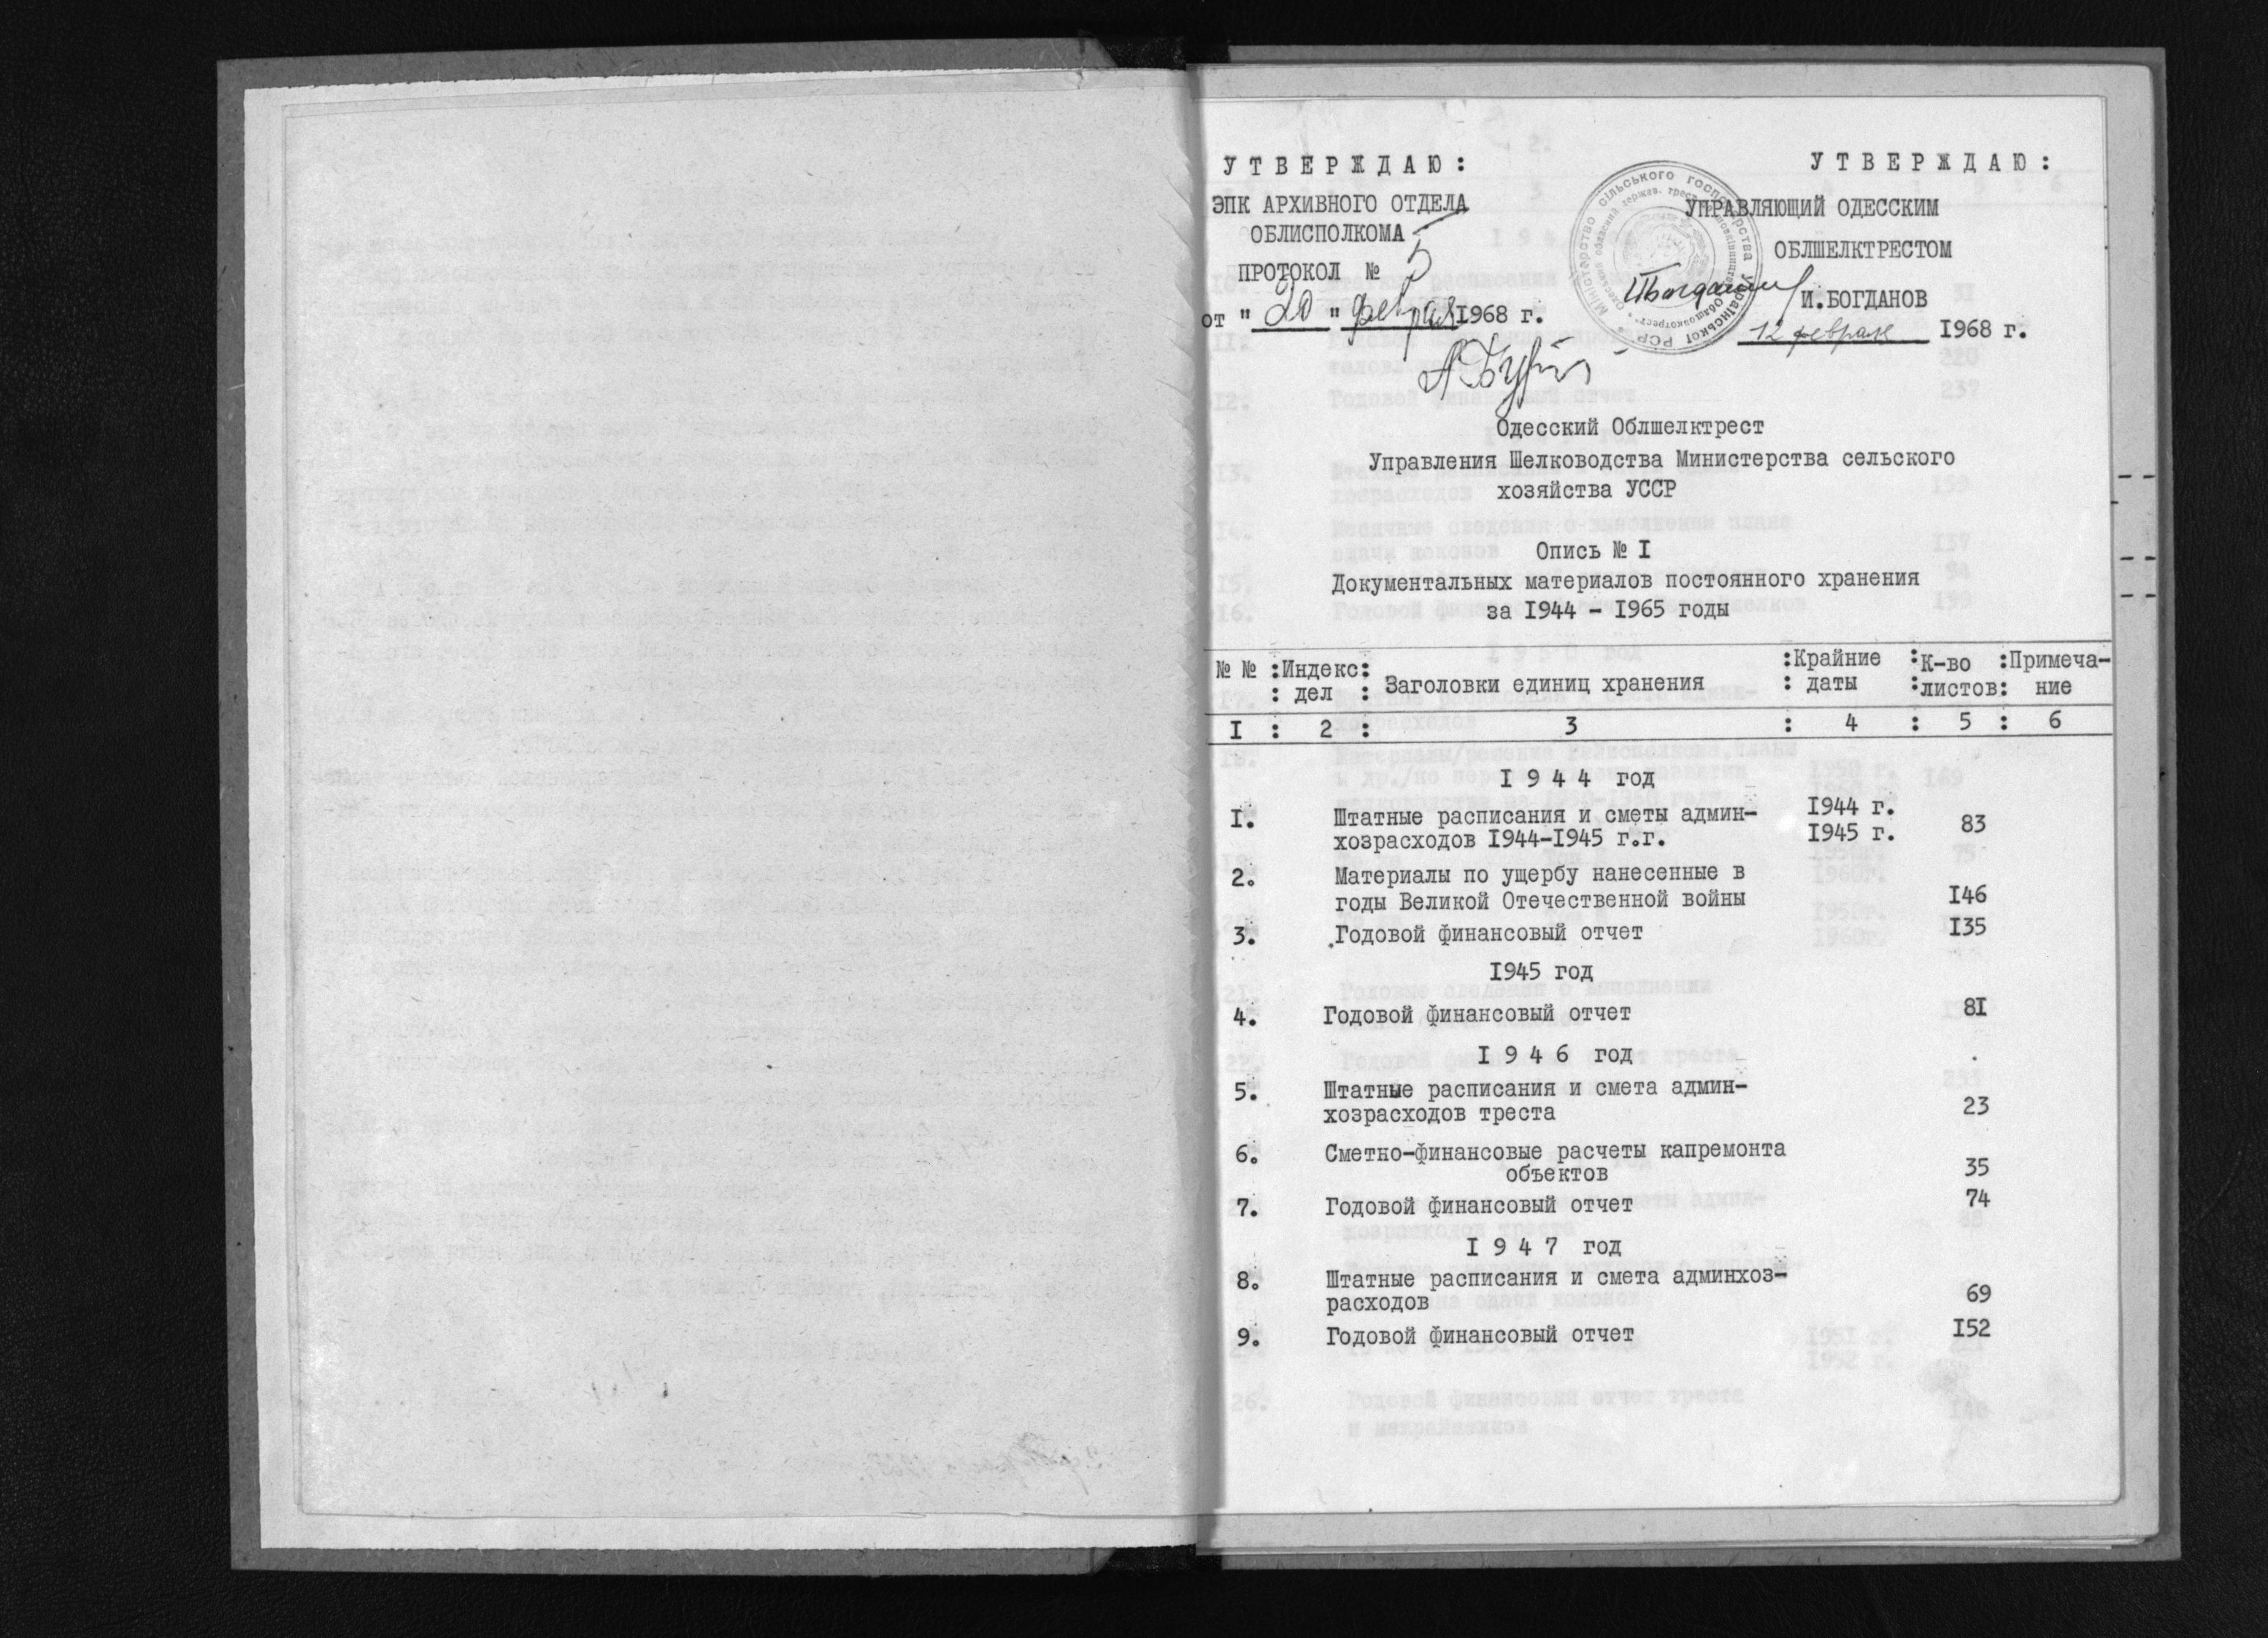 УТВЕРЖДАЮ:
ЭПК АРХИВНОГО ОТДЕЛА
ОБЛИСПОЛКОМА
ПРОТОКОЛ № 5
от "20" февраля 1968 г.
УТВЕРЖДАЮ:
УПРАВЛЯЮЩИЙ ОДЕССКИМ
ОБЛШЕЛКТРЕСТОМ
И.БОГДАНОВ
12 февраля 1968 г.
Міністерство сільського господарства Української РСР
Одесский Облшелктрест
Управления Шелководства Министерства сельского
хозяйства УССР
Опись № I
Документальных материалов постоянного хранения
за I944 - I965 годы
№ № :Индекс: Заголовки единиц хранения :Крайние :К-во :Примеча-
: дел : : даты :листов: ние
I : 2 : 3 : 4 : 5 : 6
I 9 4 4 год
I. Штатные расписания и сметы админ- I944 г.
хозрасходов I944-I945 г.г. I945 г. 83
2. Материалы по ущербу нанесенные в
годы Великой Отечественной войны I46
3. Годовой финансовый отчет I35
I945 год
4. Годовой финансовый отчет 8I
I 9 4 6 год
5. Штатные расписания и смета админ-
хозрасходов треста 23
6. Сметно-финансовые расчеты капремонта
объектов 35
7. Годовой финансовый отчет 74
I 9 4 7 год
8. Штатные расписания и смета админхоз-
расходов 69
9. Годовой финансовый отчет I52